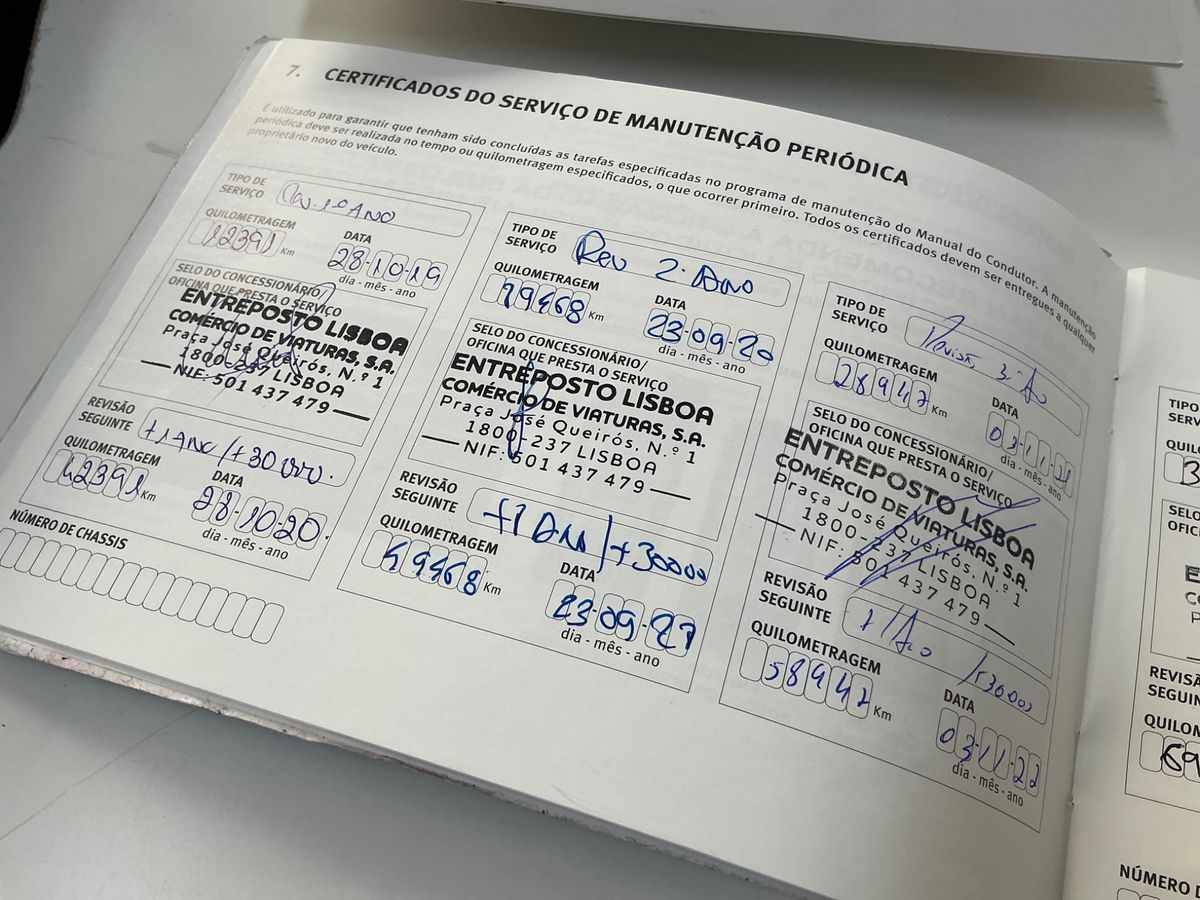 7. CERTIFICADOS DO SERVIÇO DE MANUTENÇÃO PERIÓDICA
É utilizado para garantir que tenham sido concluídas as tarefas especificadas no programa de manutenção do Manual do Condutor. A manutenção
periódica deve ser realizada no tempo ou quilometragem especificados, o que ocorrer primeiro. Todos os certificados devem ser entregues a qualquer
proprietário novo do veículo.
TIPO DE
SERVIÇO
1º ANO
QUILOMETRAGEM
12391 Km
DATA
28-10-19
dia - mês - ano
SELO DO CONCESSIONÁRIO/
OFICINA QUE PRESTA O SERVIÇO
ENTREPOSTO LISBOA
COMÉRCIO DE VIATURAS, S.A.
Praça José Queirós, N.º 1
1800-237 LISBOA
NIF: 501 437 479
REVISÃO
SEGUINTE
+1 ANO/+30000.
QUILOMETRAGEM
42391 Km
DATA
28-10-20.
dia - mês - ano
NÚMERO DE CHASSIS
TIPO DE
SERVIÇO
Rev 2º Ano
QUILOMETRAGEM
19468 Km
DATA
23-09-20
dia - mês - ano
SELO DO CONCESSIONÁRIO/
OFICINA QUE PRESTA O SERVIÇO
ENTREPOSTO LISBOA
COMÉRCIO DE VIATURAS, S.A.
Praça José Queirós, N.º 1
1800-237 LISBOA
NIF: 501 437 479
REVISÃO
SEGUINTE
+1 Ano/+30000
QUILOMETRAGEM
49468 Km
DATA
23-09-21
dia - mês - ano
TIPO DE
SERVIÇO
Revisão 3º Ano
QUILOMETRAGEM
28947 Km
DATA
03-11-21
dia - mês - ano
SELO DO CONCESSIONÁRIO/
OFICINA QUE PRESTA O SERVIÇO
ENTREPOSTO LISBOA
COMÉRCIO DE VIATURAS, S.A.
Praça José Queirós, N.º 1
1800-237 LISBOA
NIF: 501 437 479
REVISÃO
SEGUINTE
+1 Ano /+30000
QUILOMETRAGEM
58947 Km
DATA
03-11-22
dia - mês - ano
TIPO
SERV
QUIL
3
SELO
OFIC
E
CO
P
REVISÃ
SEGUIN
QUILOM
69
NÚMERO D